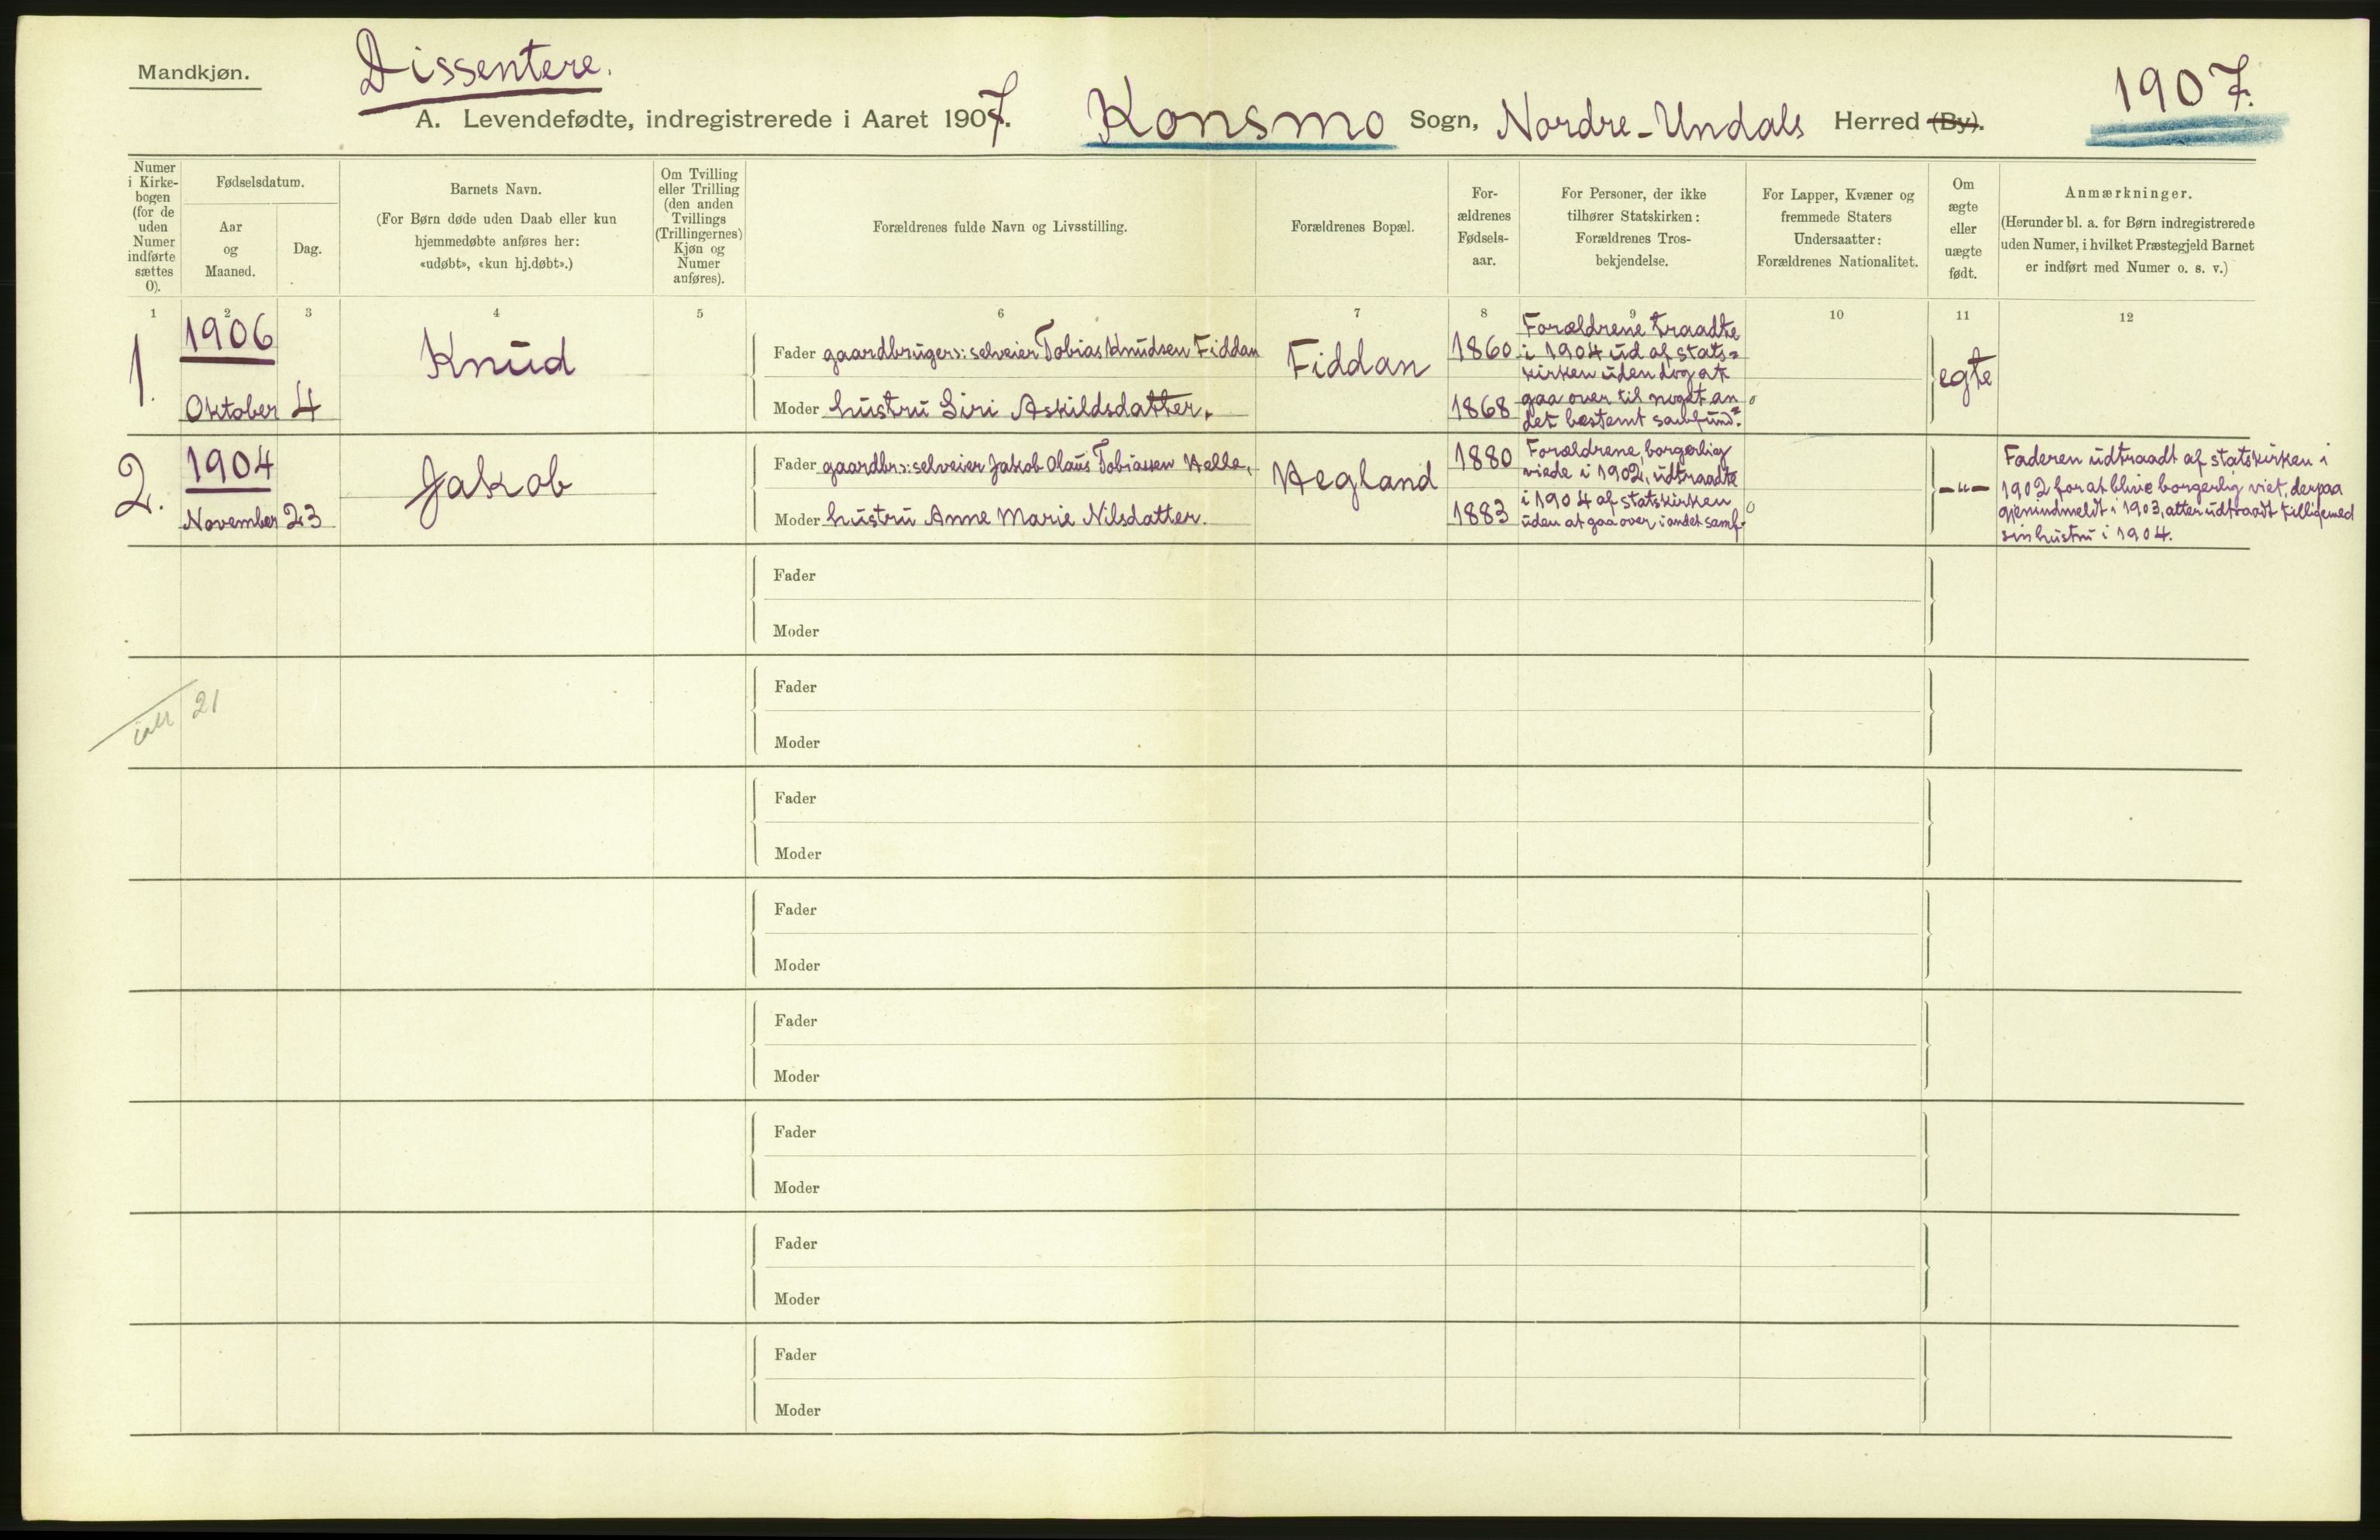 Mandkjøn.
Dissentere.
1907.
A. Levendefødte, indregistrerede i Aaret 1907. Konsmo Sogn, Nordre-Undals Herred (By).
Numer
i Kirke-
bogen
(for de
uden
Numer
indførte
sættes
O).
Fødselsdatum.
Aar
og
Maaned.
Dag.
Barnets Navn.
(For Børn døde uden Daab eller kun
hjemmedøbte anføres her:
«udøbt», «kun hj.døbt».)
Om Tvilling
eller Trilling
(den anden
Tvillings
(Trillingernes)
Kjøn og
Numer
anføres).
Forældrenes fulde Navn og Livsstilling.
Forældrenes Bopæl.
For-
ældrenes
Fødsels-
aar.
For Personer, der ikke
tilhører Statskirken:
Forældrenes Tros-
bekjendelse.
For Lapper, Kvæner og
fremmede Staters
Undersaatter:
Forældrenes Nationalitet.
Om
ægte
eller
uægte
født.
Anmærkninger.
(Herunder bl. a. for Børn indregistrerede
uden Numer, i hvilket Præstegjeld Barnet
er indført med Numer o. s. v.)
1 2 3 4 5 6 7 8 9 10 11 12
1.
1906
Oktober 4
Knud
Fader gaardbruger ɔ: selveier Tobias Knudsen Fiddan
Moder hustru Siri Askildsdatter.
Fiddan
1860
1868
Forældrene traadte
i 1904 ud af stats=
kirken uden dog at
gaa over til noget an
det bestemt samfund.
egte
2.
1904
November 23
Jakob
Fader gaardbr. ɔ: selveier Jakob Olaus Tobiassen Helle,
Moder hustru Anne Marie Nilsdatter.
Hegland
1880
1883
Forældrene, borgerlig
viede i 1902, udtraadte
i 1904 af statskirken
uden at gaa over i andet samf.
-"-
Faderen udtraadt af statskirken i
1902 for at blive borgerlig viet, derpaa
gjenindmeldt i 1903, atter udtraadt tilligemed
sin hustru i 1904.
Fader
Moder
21
Fader
Moder
Fader
Moder
Fader
Moder
Fader
Moder
Fader
Moder
Fader
Moder
Fader
Moder